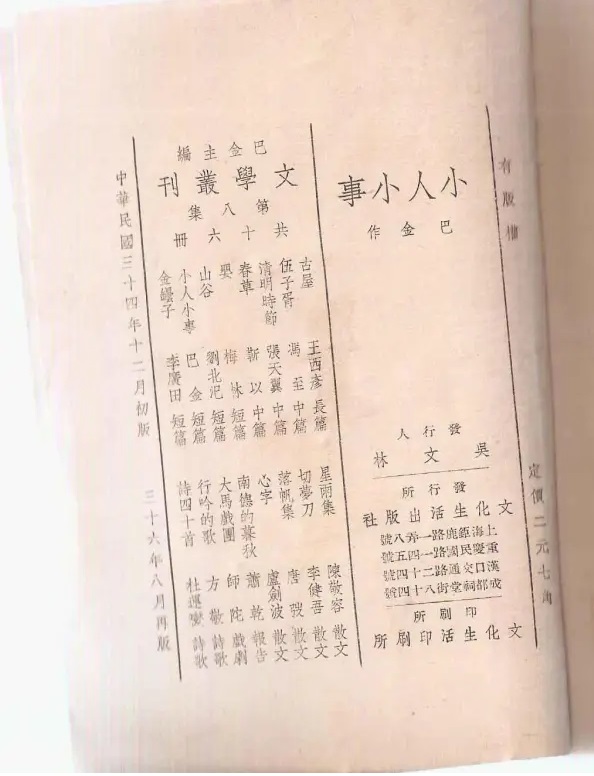 有版權
定價二元七角
小人小事
巴金作
發行人
吳文林
發行所
文化生活出版社
上海鉅鹿路一弄八號
重慶民國路一四五號
漢口交通路二十四號
成都祠堂街八十四號
印刷所
文化生活印刷所
巴金主編
文學叢刊
第八集
共十六冊
古屋 王西彥 長篇
伍子胥 馮至 中篇
清明時節 張天翼 中篇
春草 靳以 中篇
嬰 梅林 短篇
山谷 劉北汜 短篇
小人小事 巴金 短篇
金罎子 李廣田 短篇
星雨集 陳敬容 散文
切夢刀 李健吾 散文
落帆集 唐弢 散文
心字 盧劍波 散文
南德的暮秋 蕭乾 報告
大馬戲團 師陀 戲劇
行吟的歌 方敬 詩歌
詩四十首 杜運燮 詩歌
中華民國三十四年十二月初版
三十六年八月再版